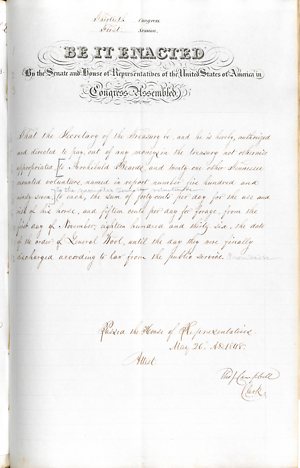 Thirtieth Congress
First Session
BE IT ENACTED
By the Senate and House of Representatives of the United States of America in
Congress Assembled,
That the Secretary of the Treasury is, and he is hereby, authorized
and directed to pay, out of any money in the treasury not otherwise
appropriated, [ Archibald Beard, and twenty one other Tennessee
mounted volunteers, named in report number five hundred and
ninety
to each, the sum of forty cents per day for the use and
risk of his horse, and fifteen cents per day for forage, from the
first day of November, eighteen hundred and thirty six, the date
of the order of General Wool, until the day they were finally
discharged according to law from the public service.
Passed the House of Representatives
May 26th AD 1848.
Attest
Tho. J. Campbell
Clerk